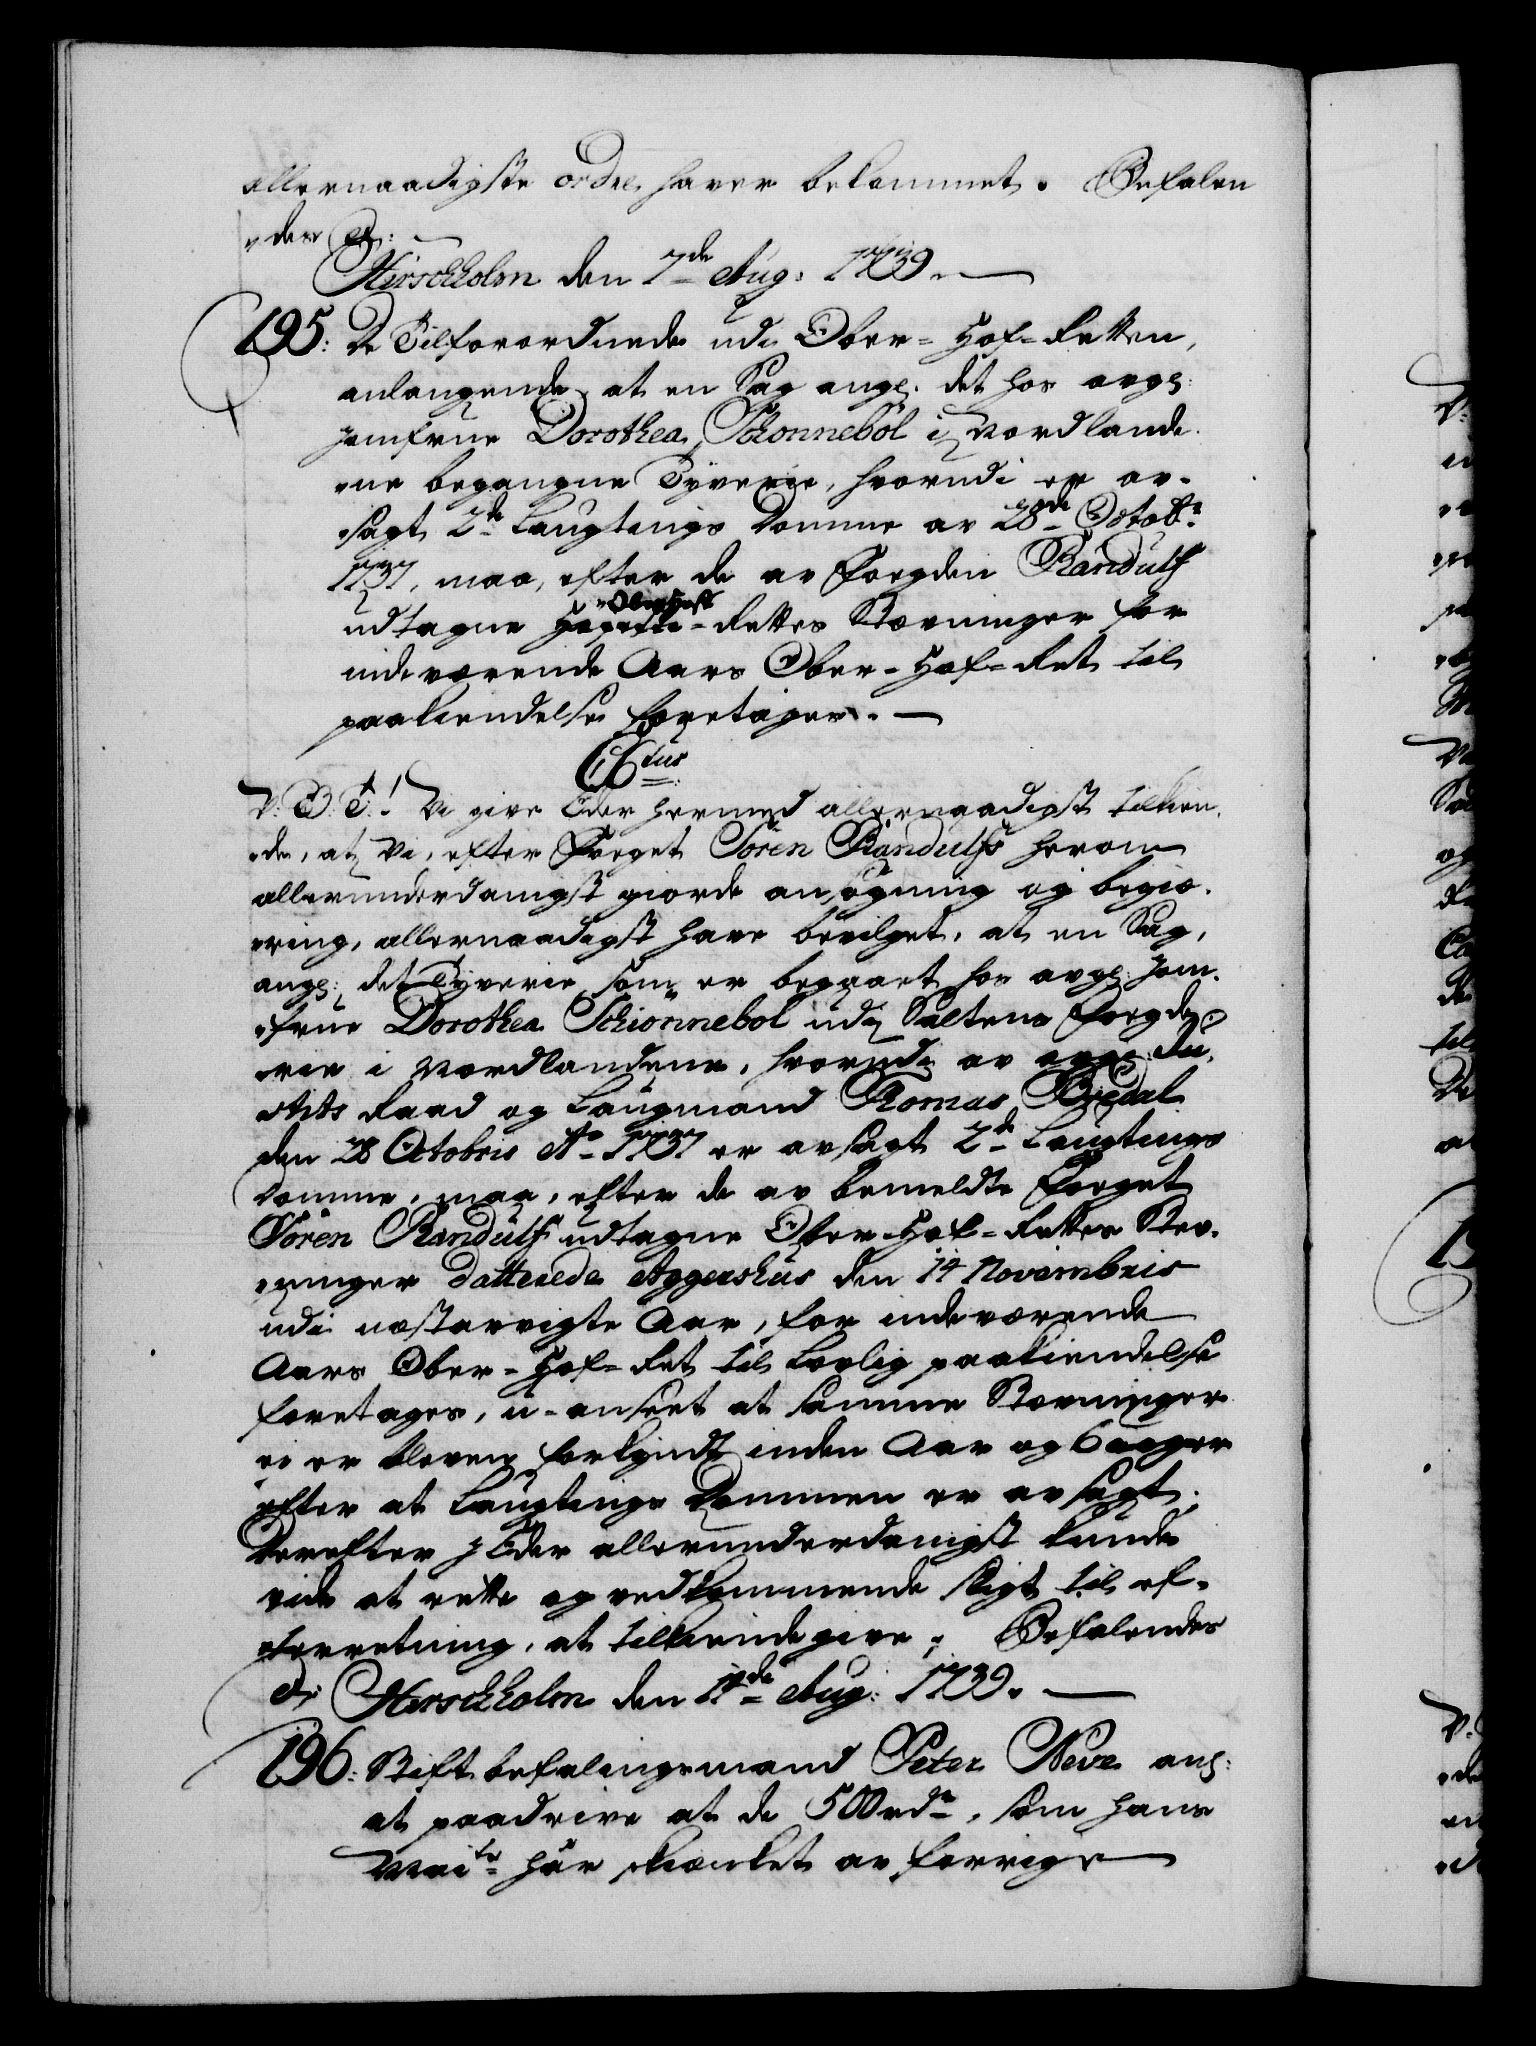 allernaadigste ordre haver bekommet. Befalen
des &:
Hirschholm den 7de Aug: 1739.
195: De Tilforordnede udi Ober-Hof-Retten,
anlangende, at en Sag angl: det hos avgl:
Jomfrue Dorothea Schonneböl i Nordlande
ne begangne Tyverie, hvorudi er av-
sagt 2de Laugtings Domme av 28de Octobr:
1737, maa, efter de av Fogden Randulf
udtagne OberHoff-Rettes Stevninger for
indeværende Aars Ober-Hof-Ret til
paakiendelse foretages.
Ctus
V: G: T:! Vi give Eder hermed allernaadigst tilkien-
de, at vi, efter Foget Sören Randulfs herom
allerunderdanigst giorde ansøgning og begiæ-
ring, allernaadigst have bevilget, at en Sag,
angl: det Tyverie som er begaaet hos avgl: Jom-
frue Dorothea Schionnebol udi Saltens Fogde-
rie i Nordlandene, hvorudi av avgl: Ju-
stits Raad og Laugmand Thomas Bredal
den 28 Octobris Ao 1737 er avsagt 2de Laugtings
Domme, maa, efter de av bemeldte Foget
Sören Randulf udtagne Ober-Hof-Rettes Stev-
ninger daterede Aggershus den 14 Novembris
udi næstavvigte Aar, for indeværende
Aars Ober-Hof-Ret til lovlig paakiendelse
foretages, u-anseet at samme Stevninger
ei er bleven forkyndt inden Aar og 6 uger
efter at Laugtings Dommen er avsagt;
Derefter I Eder allerunderdanigst kunde
vide at rette og vedkommende sligt til ef-
terretning, at tilkiende give; Befalendes
&: Hirschholm den 14de Aug: 1739.
196: Stiftbefalingsmand Peter Neve angl:
at paadrive at de 500 rdr, som Hans
Maits har skienket av forrige